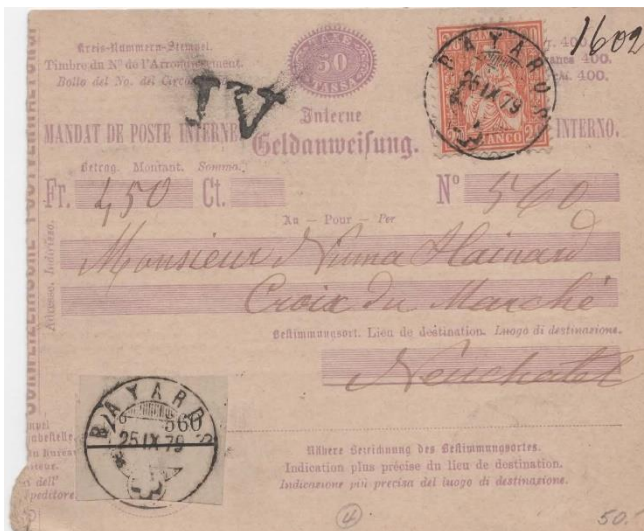 Kreis-Nummern-Stempel.
Timbre du Nº de l'Arrondissement.
Bollo del No. del
TAXE
50
TASSA
400.
400.
400.
1602
BAYARDS
25 IX 79
FRANCO
IV
Interne
MANDAT DE POSTE INTERNE
Geldanweisung.
INTERNO.
Betrag. Montant. Somma.
Fr. 450 Ct.
Nº 560
An — Pour — Per
Adresse. Indirizzo.
Monsieur Numa Hainard
Croix du Marché
Bestimmungsort. Lieu de destination. Luogo di destinazione.
Neuchatel
560
BAYARDS
25 IX 79
Nähere Bezeichnung des Bestimmungsortes.
Indication plus précise du lieu de destination.
Indicazione più precisa del luogo di destinazione.
4
50